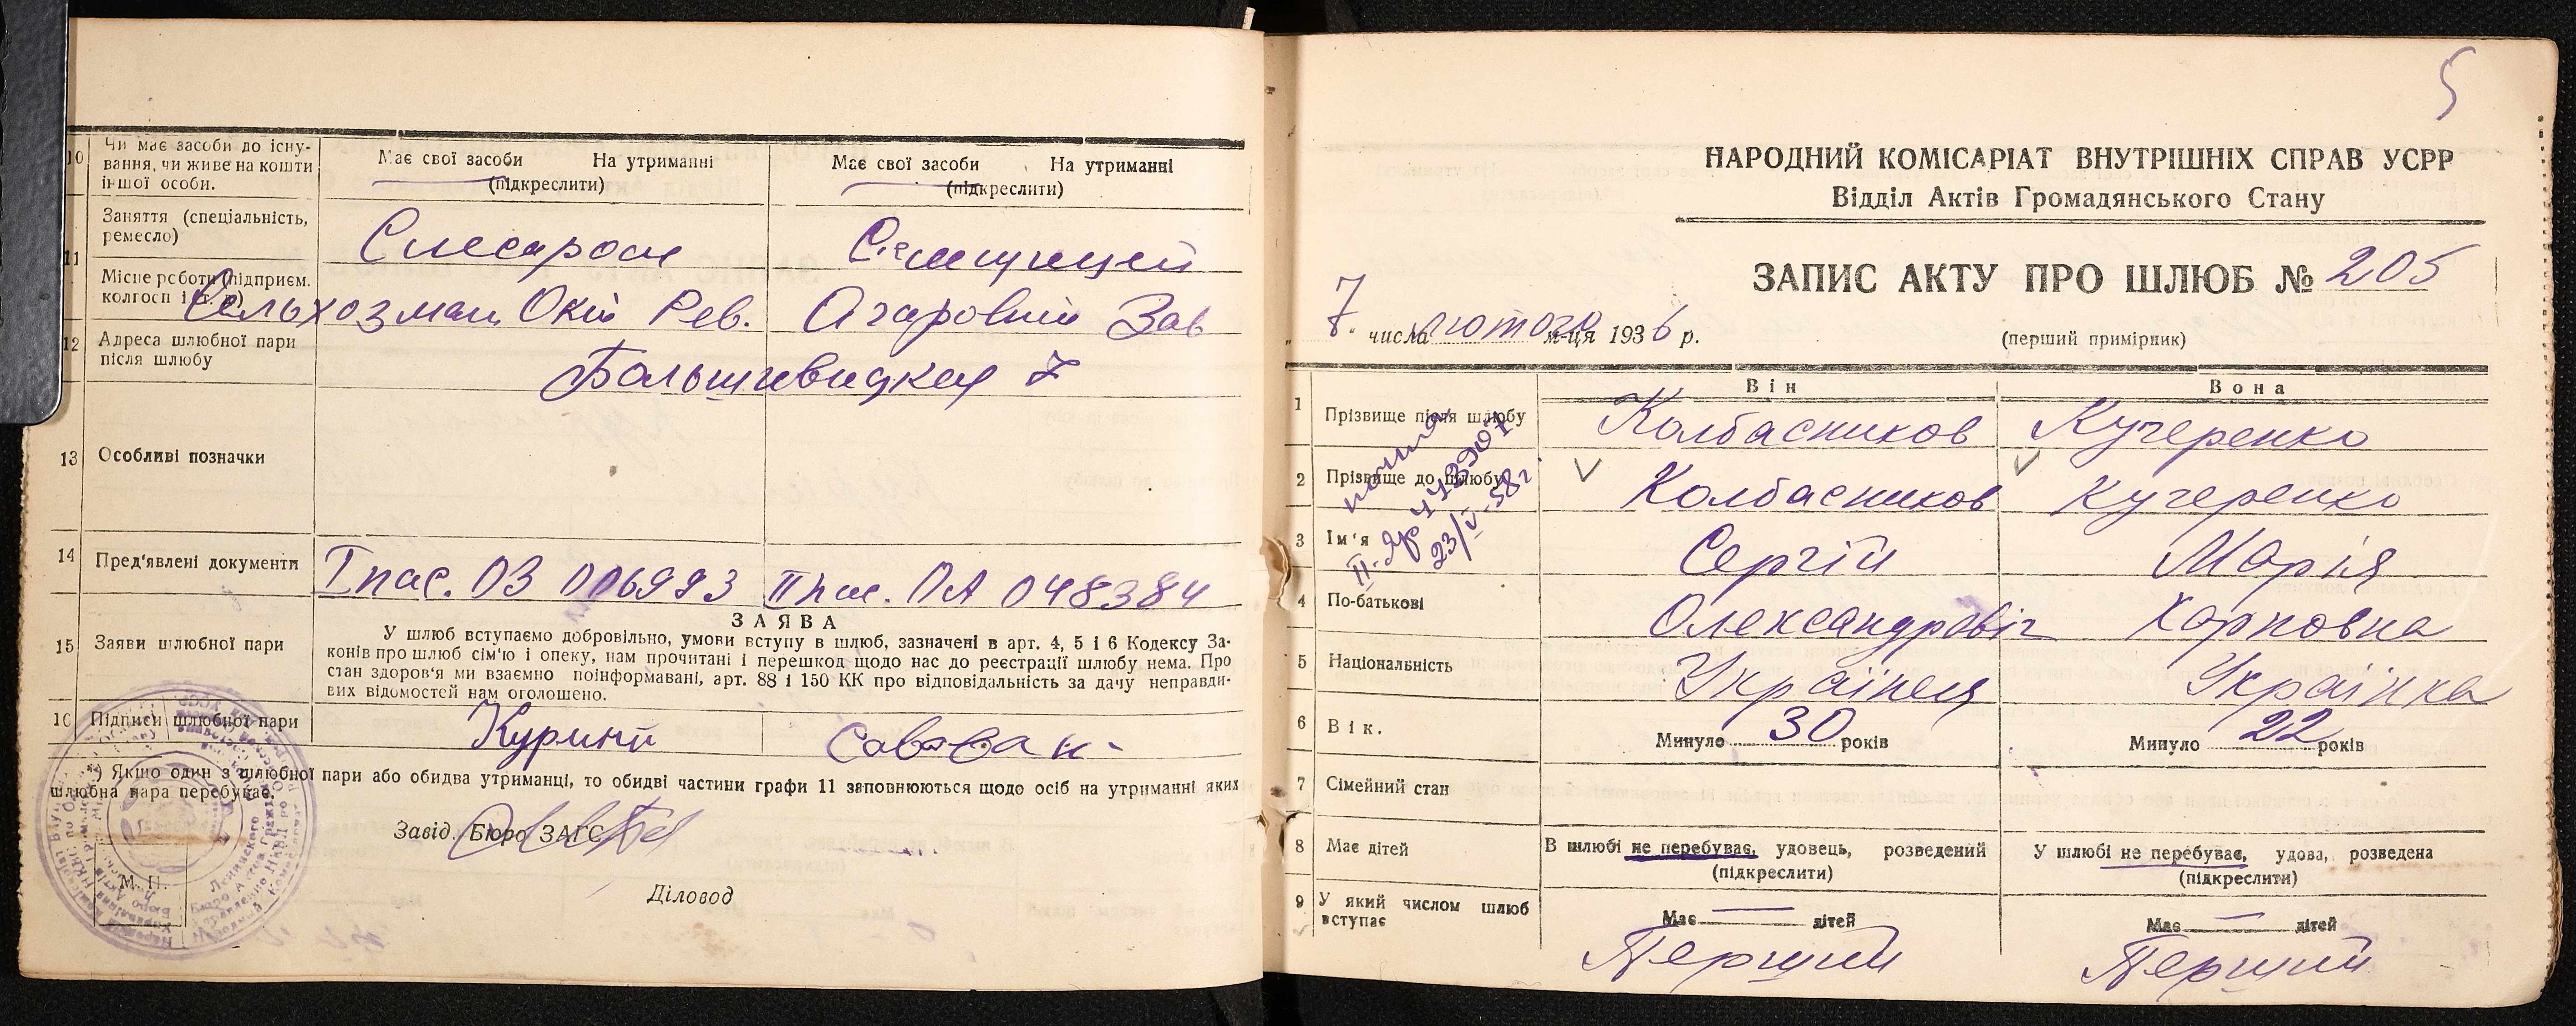 10 Чи має засоби до існу-
вання, чи живе на кошти
іншої особи.
Має свої засоби На утриманні
(підкреслити)
Має свої засоби На утриманні
(підкреслити)
11 Заняття (спеціальність,
ремесло)
Слесаром
Місце роботи (підприєм.
колгосп і т. д.)
Сельхозмаш Окт Рев.
Зав
12 Адреса шлюбної пари
після шлюбу
7
13 Особливі позначки
14 Пред'явлені документи
I пас. ОЗ 006993
II пас. ПА 048384
15 Заяви шлюбної пари
ЗАЯВА
У шлюб вступаємо добровільно, умови вступу в шлюб, зазначені в арт. 4, 5 і 6 Кодексу За-
конів про шлюб сім'ю і опеку, нам прочитані і перешкод щодо нас до реєстрації шлюбу нема. Про
стан здоров'я ми взаємно поінформавані, арт. 88 і 150 КК про відповідальність за дачу неправди-
вих відомостей нам оголошено.
16 Підписи шлюбної пари
*) Якшо один з шлюбної пари або обидва утриманці, то обидві частини графи 11 заповнюються щодо осіб на утриманні яких
шлюбна пара перебуває.
Завід. Бюро ЗАГС
М. П.
Діловод
5
НАРОДНИЙ КОМІСАРІАТ ВНУТРІШНІХ СПРАВ УСРР
Відділ Актів Громадянського Стану
ЗАПИС АКТУ ПРО ШЛЮБ № 205
7 числа лютого м-ця 1936 р.
(перший примірник)
Він
Вона
1 Прізвище після шлюбу
Колбасников
Кучеренко
2 Прізвище до шлюбу
Колбасников
Кучеренко
23/V-58г.
3 Ім'я
Сергій
Марія
4 По-батькові
Олександровіч
Карповна
5 Національність
Українец
Українка
6 Вік.
Минуло 30 років
Минуло 22 років
7 Сімейний стан
8 Має дітей
В шлюбі не перебуває, удовець, розведений
(підкреслити)
У шлюбі не перебуває, удова, розведена
(підкреслити)
9 У який числом шлюб
вступає
Має — дітей
Має — дітей
Перший
Перший